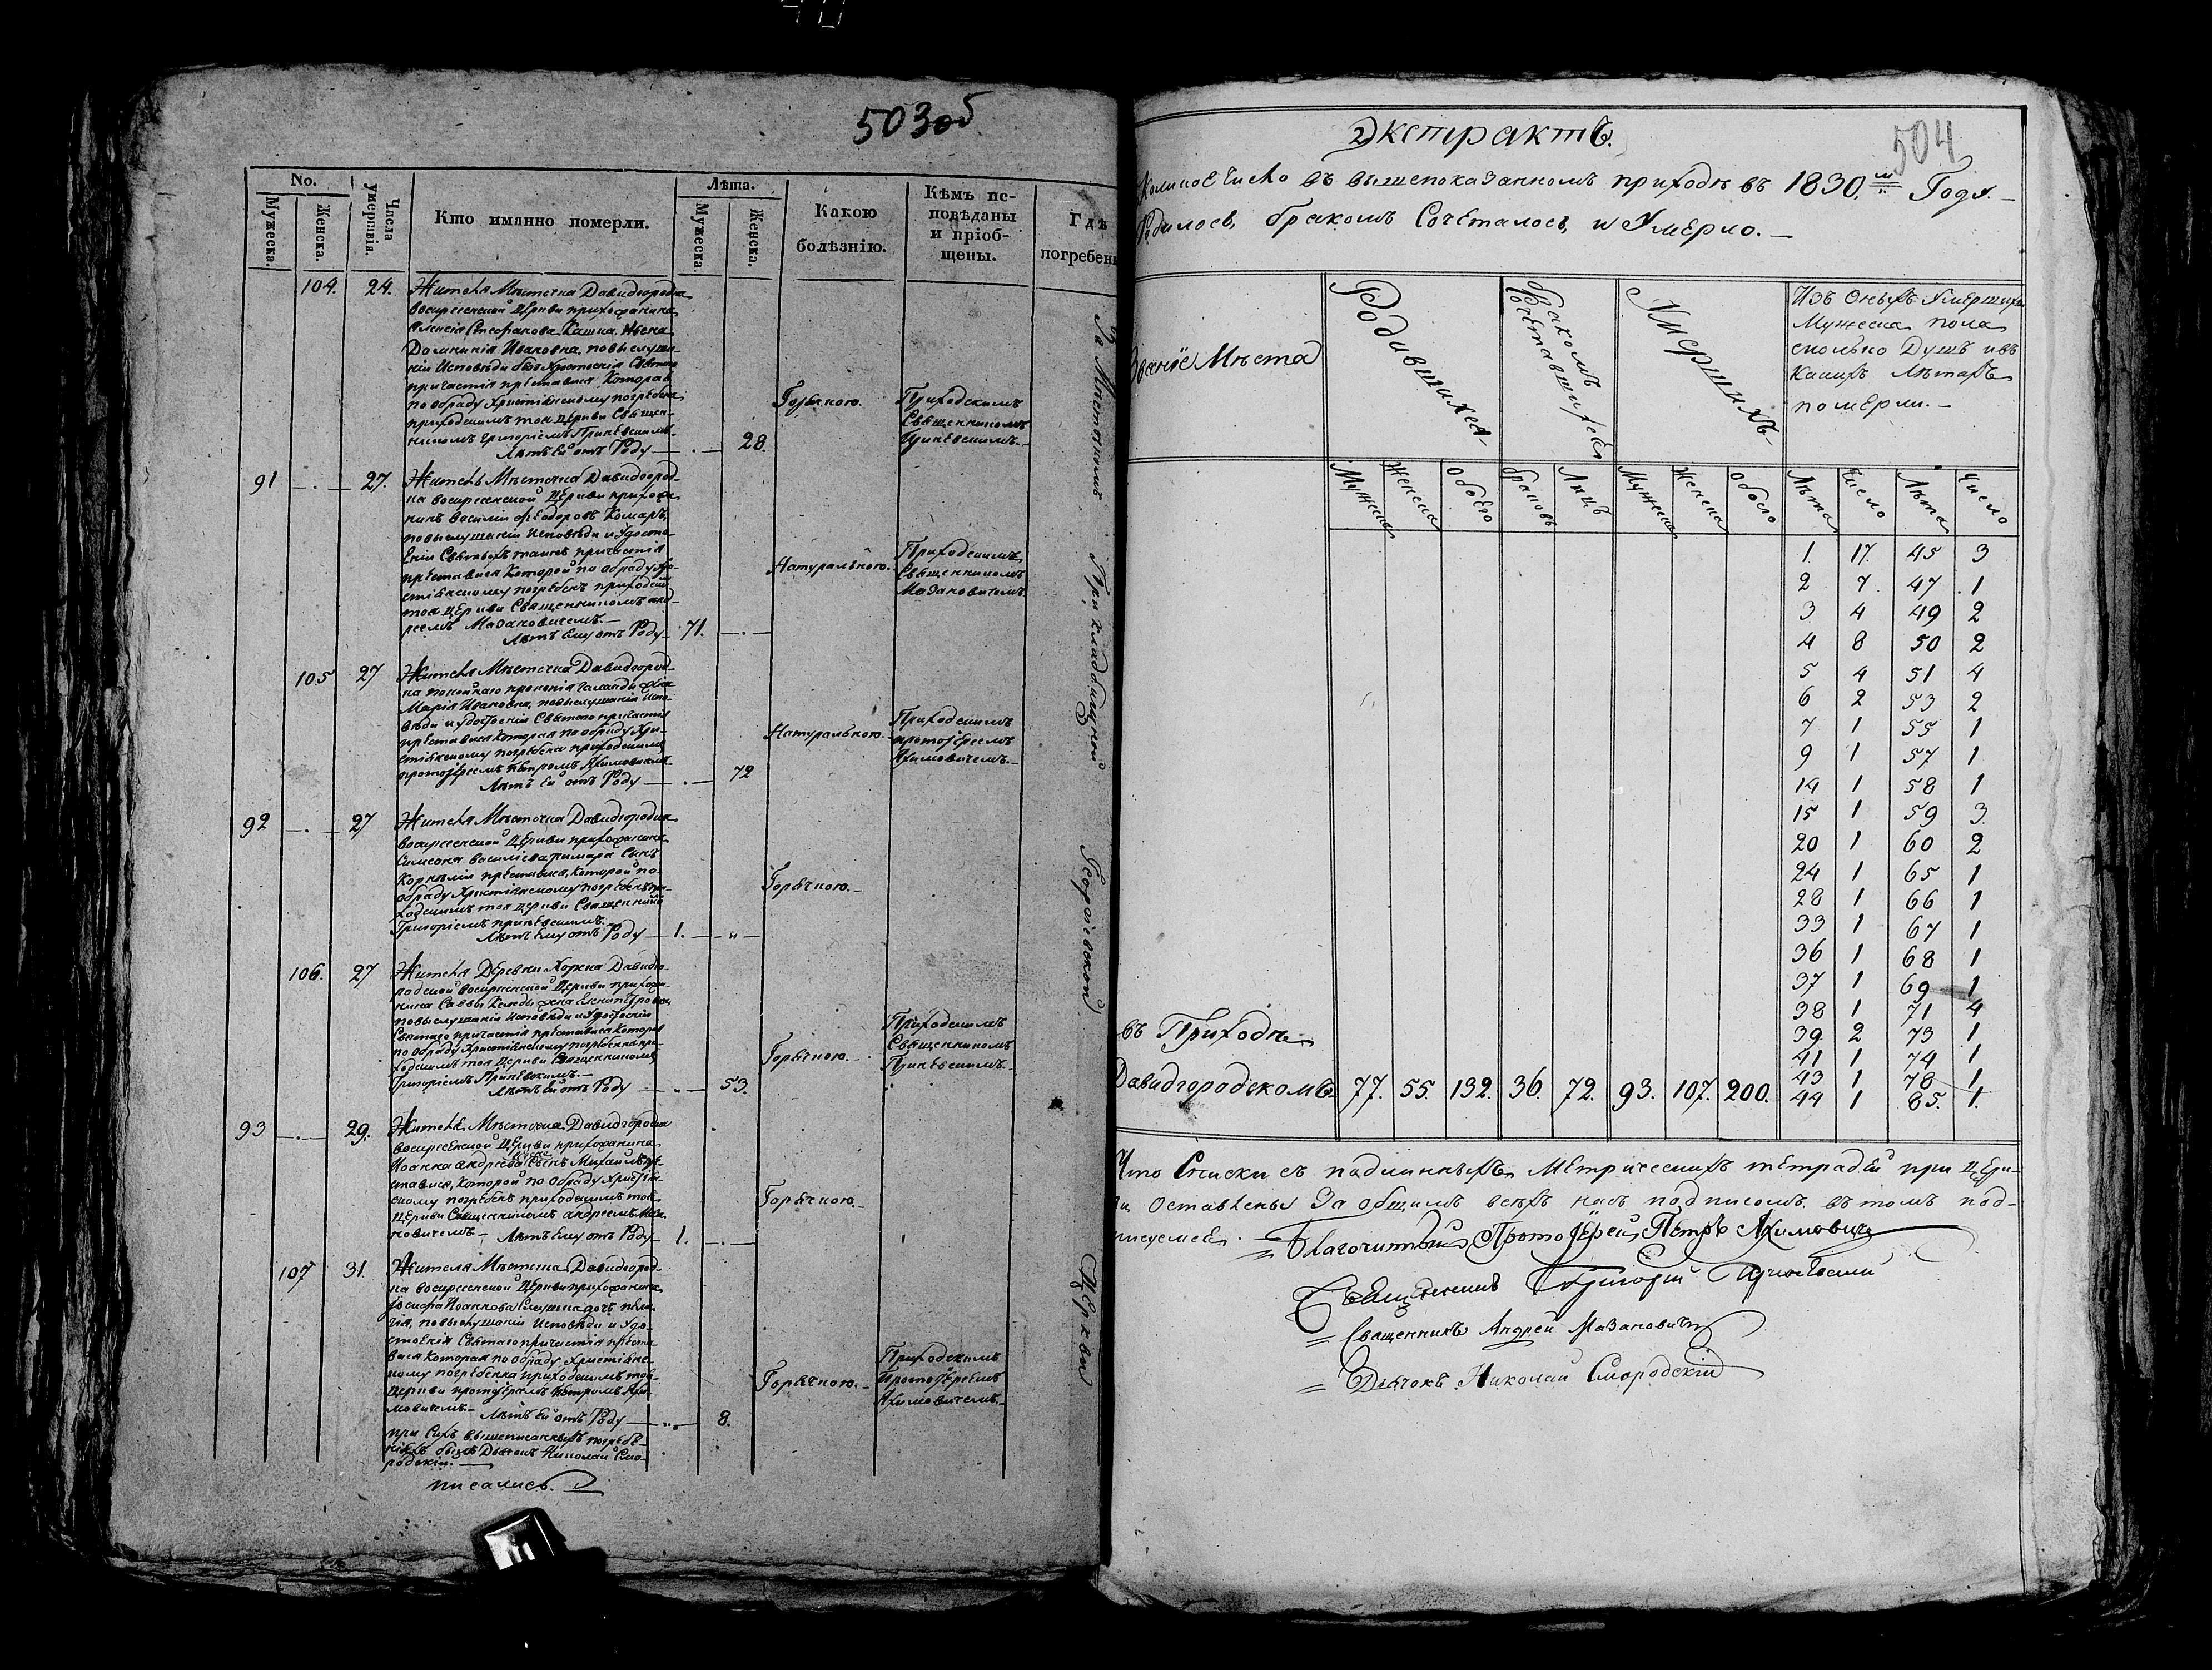 503об
No.
Мужеска.
Женска.
Числа умертвія.
Кто имянно померли.
Лѣта.
Мужеска
Женска.
Какою болѣзнію.
Кѣмъ ис-
повѣданы
и пріоб-
щены.
Гдѣ
погребены
104. 24. Жителя Мѣстечка Давидгородка
воскресенской Церкви прихожанина
Стефанова Кашка Жена
Домникія Ивановна, по выслуша-
ніи Исповѣди
причастія преставися, Которая
по обряду Христіянскому погребена
приходскимъ тоя Церкви Священ-
никомъ Григоріемъ
Лѣтъ Ей отъ Роду 28.
Горячкою.
Приходскимъ
Священникомъ
91 27. Житель Мѣстечка Давидгород-
ка воскресенской Церкви прихожа-
нинъ Василій Феодоровъ Комаръ,
по выслушаніи Исповѣди и Удосто-
еніи Святыхъ таинъ причастія
преставися Которой по обряду Хри-
стіянскому погребенъ приходскимъ
тоя Церкви Священникомъ Анд-
реемъ Мазановичемъ.
Лѣтъ Ему отъ Роду 71.
Натуральною.
Приходскимъ
Священникомъ
Мазановичемъ
105 27 Жителя Мѣстечка Давидгород-
ка покойнаго прокопія жена
Марія Ивановна, по выслушаніи Испо-
вѣди и удостоеніи Святаго причастія
преставися Которая по обряду Хри-
стіянскому погребена приходскимъ
протоіереемъ Петромъ Якимовичемъ
Лѣтъ Ей отъ Роду 72
Натуральною.
Приходскимъ
протоіереемъ
Якимовичемъ.
92 27 Жителя Мѣстечка Давидгородка
воскресенской Церкви прихожанина
Симеона Василіева Римара Сынъ
Корнилій преставися, Которой по
обряду Христіянскому погребенъ при-
ходскимъ тоя Церкви Священникомъ
Григоріемъ
Лѣтъ Ему отъ Роду 1.
Горячкою.
106. 27 Жителя Деревни Хорска Давидго-
родской воскресенской Церкви прихожа-
нина Саввы жена
по выслушаніи Исповѣди и Удостоеніи
Святаго причастія преставися Которая
по обряду Христіянскому погребена при-
ходскимъ тоя Церкви Священникомъ
Григоріемъ
Лѣтъ Ей отъ Роду 53.
Горячкою.
Приходскимъ
Священникомъ
93 29. Жителя Мѣстечка Давидгородка
воскресенской Церкви прихожанина
Иоанна Андреева Сынъ Михаилъ пре-
ставися, Которой по обряду Христіян-
скому погребенъ приходскимъ тоя
Церкви Священникомъ Андреемъ Маза-
новичемъ. Лѣтъ Ему отъ Роду 1.
Горячкою.
107 31. Жителя Мѣстечка Давидгород-
ка воскресенской Церкви прихожанина
Іосифа Иоаннова дочь Пела-
гія, по выслушаніи Исповѣди и Удо-
стоеніи Святаго причастія преста-
вися Которая по обряду Христіянс-
кому погребена приходскимъ тоя
Церкви протоіереемъ Петромъ Яки-
мовичемъ. Лѣтъ Ей отъ Роду 8.
Горячкою.
Приходскимъ
Протоіереемъ
Якимовичемъ.
при Сихъ вышеписанныхъ погребе-
ніяхъ былъ Дьячокъ Николай Смо-
родскій.
писались.
За Мѣстечкомъ при кладбищной Георгіевской Церкви
504
Экстрактъ.
Коликое Число въ вышепоказанномъ приходѣ въ 1830.м Годѣ.
Родилось, бракомъ Сочеталось, и Умерло.
Званіе Мѣста
Родившихся
бракомъ Сочетавшихся
Умершихъ
Изъ Оныхъ Умершихъ
Мужеска пола
сколько Душъ и въ
Какихъ Лѣтахъ
померли.
Мужеска Женска Обоего браковъ Лицъ Мужеска Женска Обоего Лѣта Число Лѣта Число
1. 17. 45 3
2 7 47 1
3 4 49 2
4 8 50 2
5 4 51 4
6 2 53 2
7 1 55 1
9 1 57 1
14 1 58 1
15 1 59 3
20 1 60 2
24 1 65 1
28 1 66 1
33 1 67 1
36 1 68 1
37 1 69 1
38 1 71 4
39 2 73 1
41 1 74 1
43 1 78 1
44 1 85. 1.
въ Приходѣ
Давидгородскомъ 77. 55. 132. 36. 72. 93. 107. 200.
Что Списки съ подлинныхъ Метрическихъ тетрадей при Церк-
ви Оставлены За общимъ всѣхъ насъ подписомъ въ томъ под-
писуемся.
Благочинный Протоіерей Петръ Якимовичъ
Священникъ Григорій
Священникъ Андрей Мазановичъ
Дьячокъ Николай Смородскій